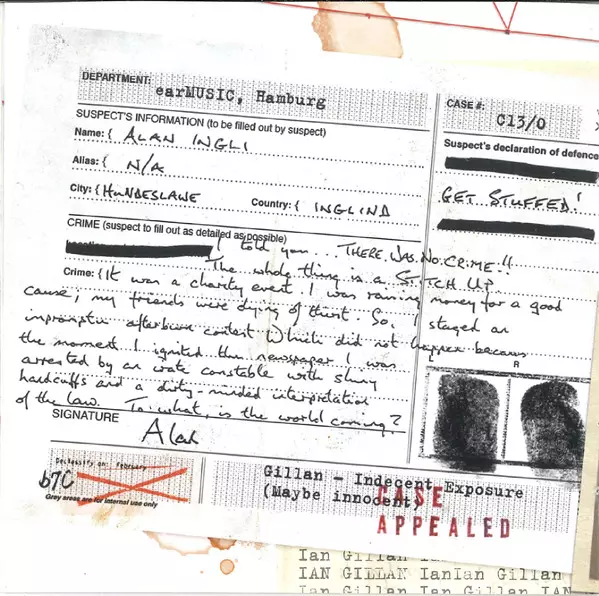 DEPARTMENT: earMUSIC, Hamburg
CASE #: C13/0
SUSPECT'S INFORMATION (to be filled out by suspect)
Name: { ALAN INGLI
Alias: { N/A
City: { HUNDESLAWE
Country: { INGLIND
Suspect's declaration of defence
GET STUFFED!
CRIME (suspect to fill out as detailed as possible)
I told you... THERE WAS NO CRIME!!
The whole thing is a STITCH UP
Crime: { It was a charity event. I was raising money for a good
cause; my friends were dying of thirst. So, I staged an
impromptu afterburn contest which did not happen because
the moment I ignited the newspaper I was
arrested by an irate constable with shiny
handcuffs and a dirty minded interpretation
of the law. To what, is the world coming?
L R
SIGNATURE
Alan
Declassify on: February
b7C
Grey areas are for internal use only
Gillan - Indecent Exposure
(Maybe innocent)
CASE
APPEALED
Ian Gillan Ian
IAN GILLAN IanIan Gillan
Ian Gillan Ian Gillan IAN